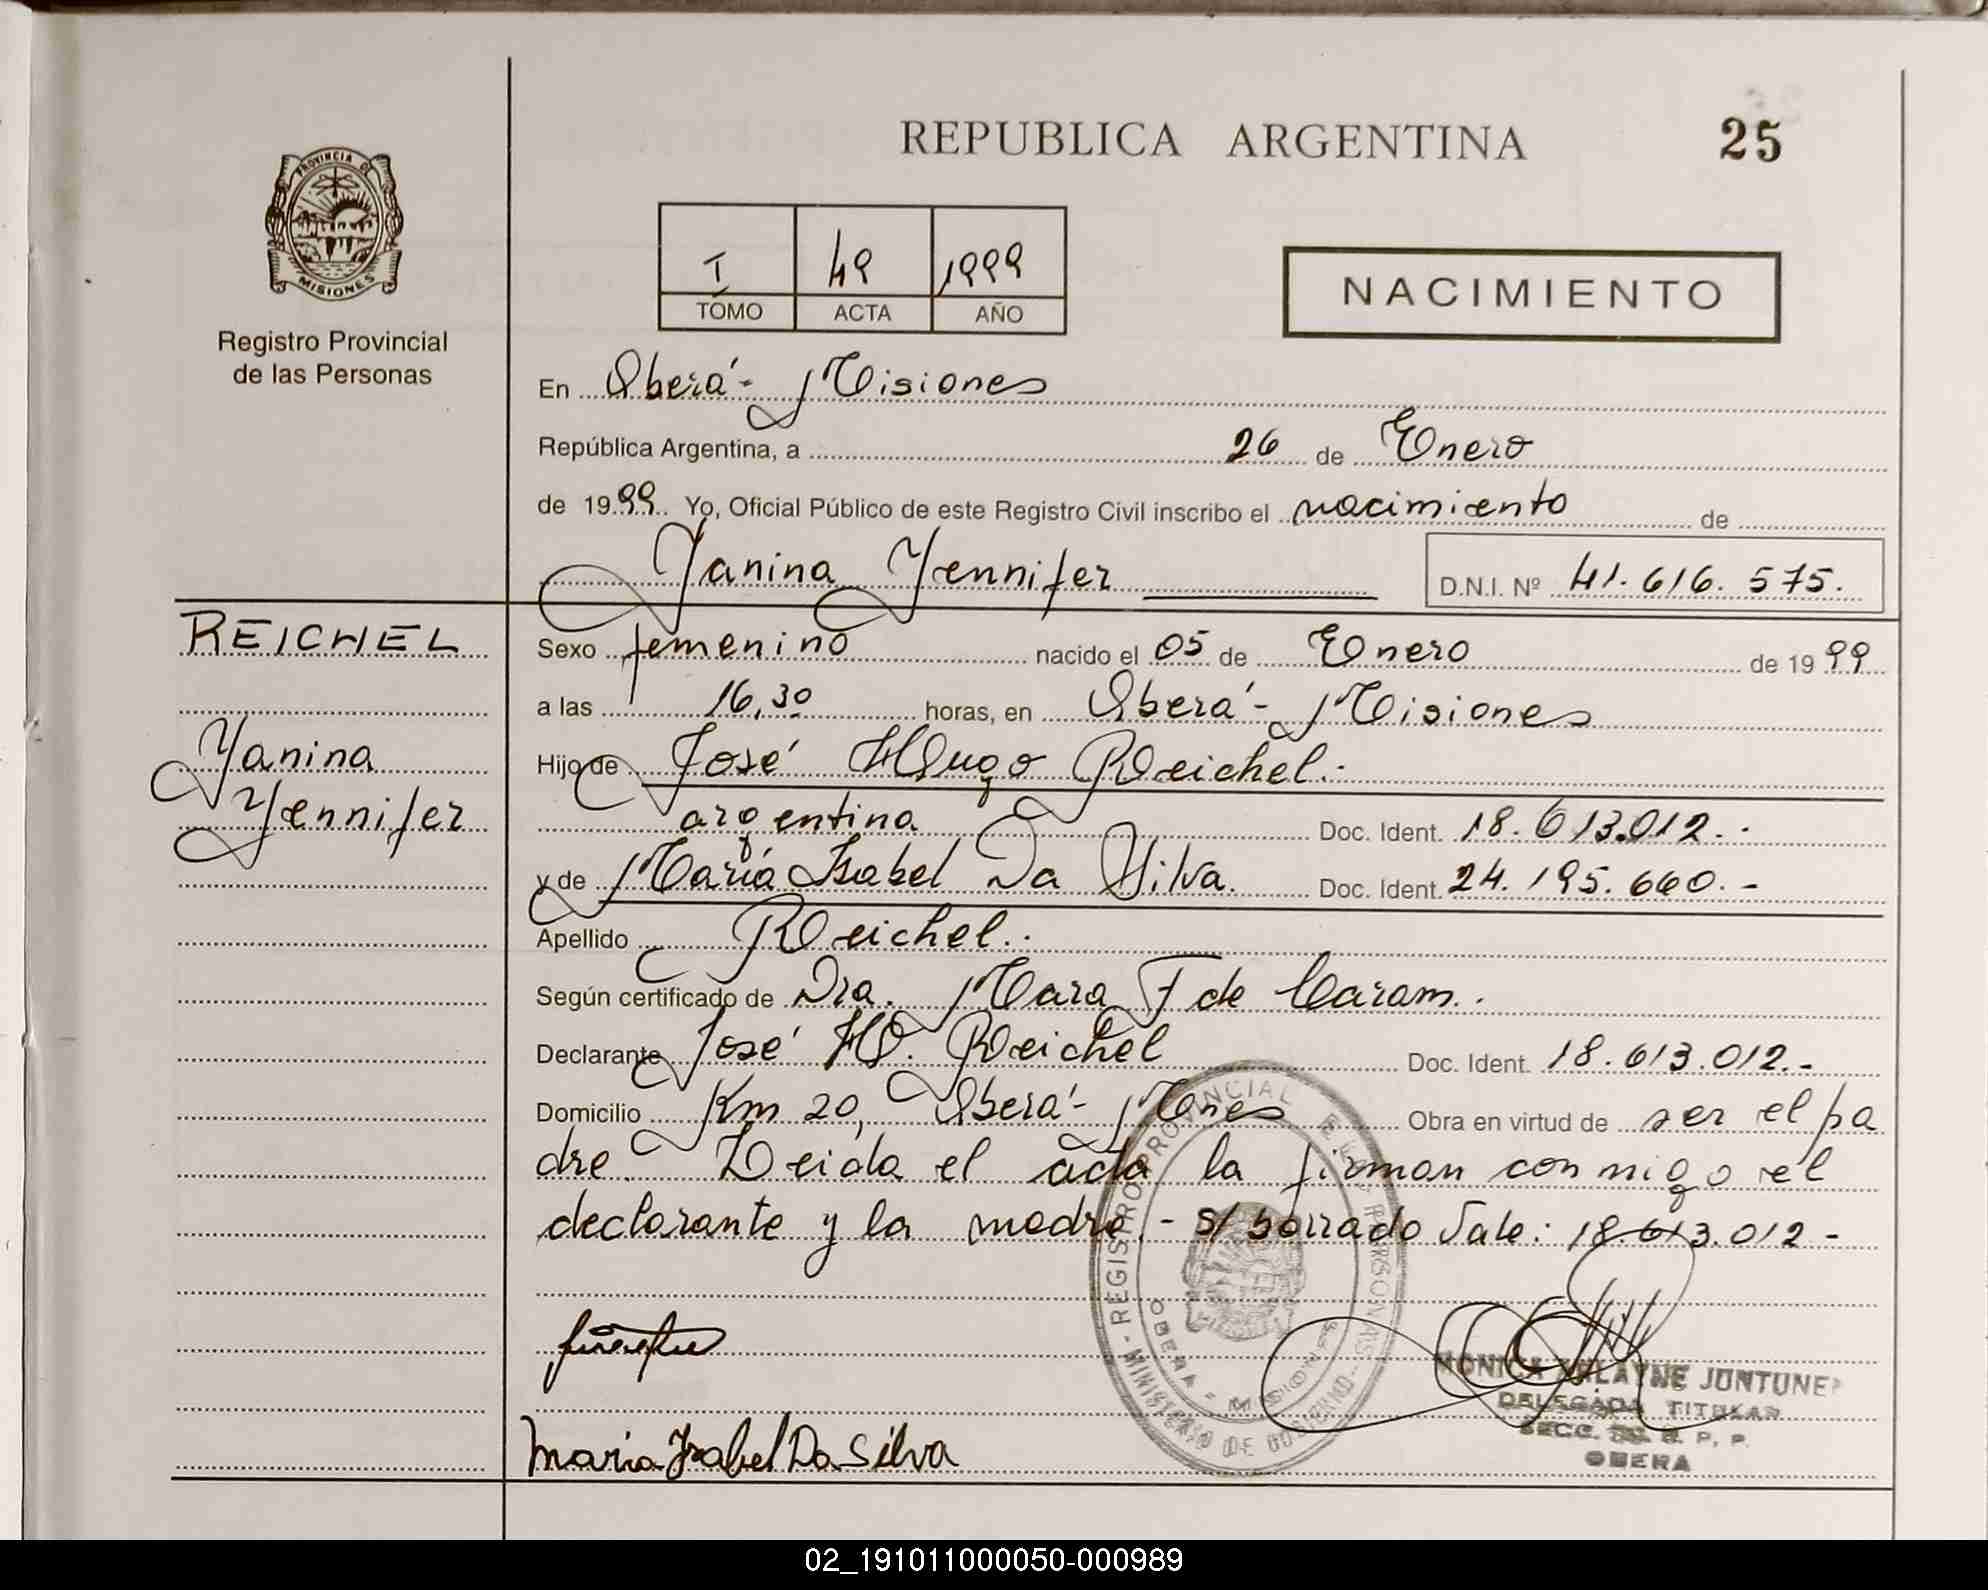 REPUBLICA ARGENTINA 25
PROVINCIA DE
MISIONES
Registro Provincial
de las Personas
I 49 1999
TOMO ACTA AÑO
NACIMIENTO
En Oberá - Misiones
República Argentina, a 26 de Enero
de 1999 Yo, Oficial Público de este Registro Civil inscribo el nacimiento de
Yanina Yennifer D.N.I. Nº 41.616.575.
REICHEL
Yanina
Yennifer
Sexo femenino nacido el 05 de Enero de 1999
a las 16,30 horas, en Oberá - Misiones
Hijo de José Hugo Reichel.-
argentina Doc. Ident. 18.613.012.-
y de María Isabel Da Silva. Doc. Ident. 24.195.660.-
Apellido Reichel.-
Según certificado de Dra. Mara F de Caram.-
Declarante José H. Reichel Doc. Ident. 18.613.012.-
Domicilio Km 20, Oberá - Mnes Obra en virtud de ser el pa
dre. Leida el acta la firman conmigo el
declarante y la madre.- S/ borrado Vale: 18.613.012 -
REGISTRO PROVINCIAL DE LAS PERSONAS
OBERA - MISIONES
MINISTERIO DE GOBIERNO
MONICA JUNTUNE
DELEGADA TITULAR
SECC. R. P. P.
OBERA
Maria Isabel Da Silva
02_191011000050-000989